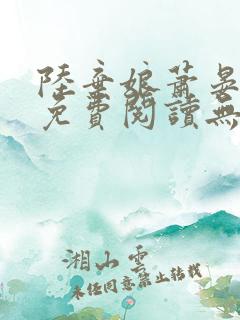 陸棄娘蕭晏
免費閱讀無
湘山雲
未經同意禁止轉載